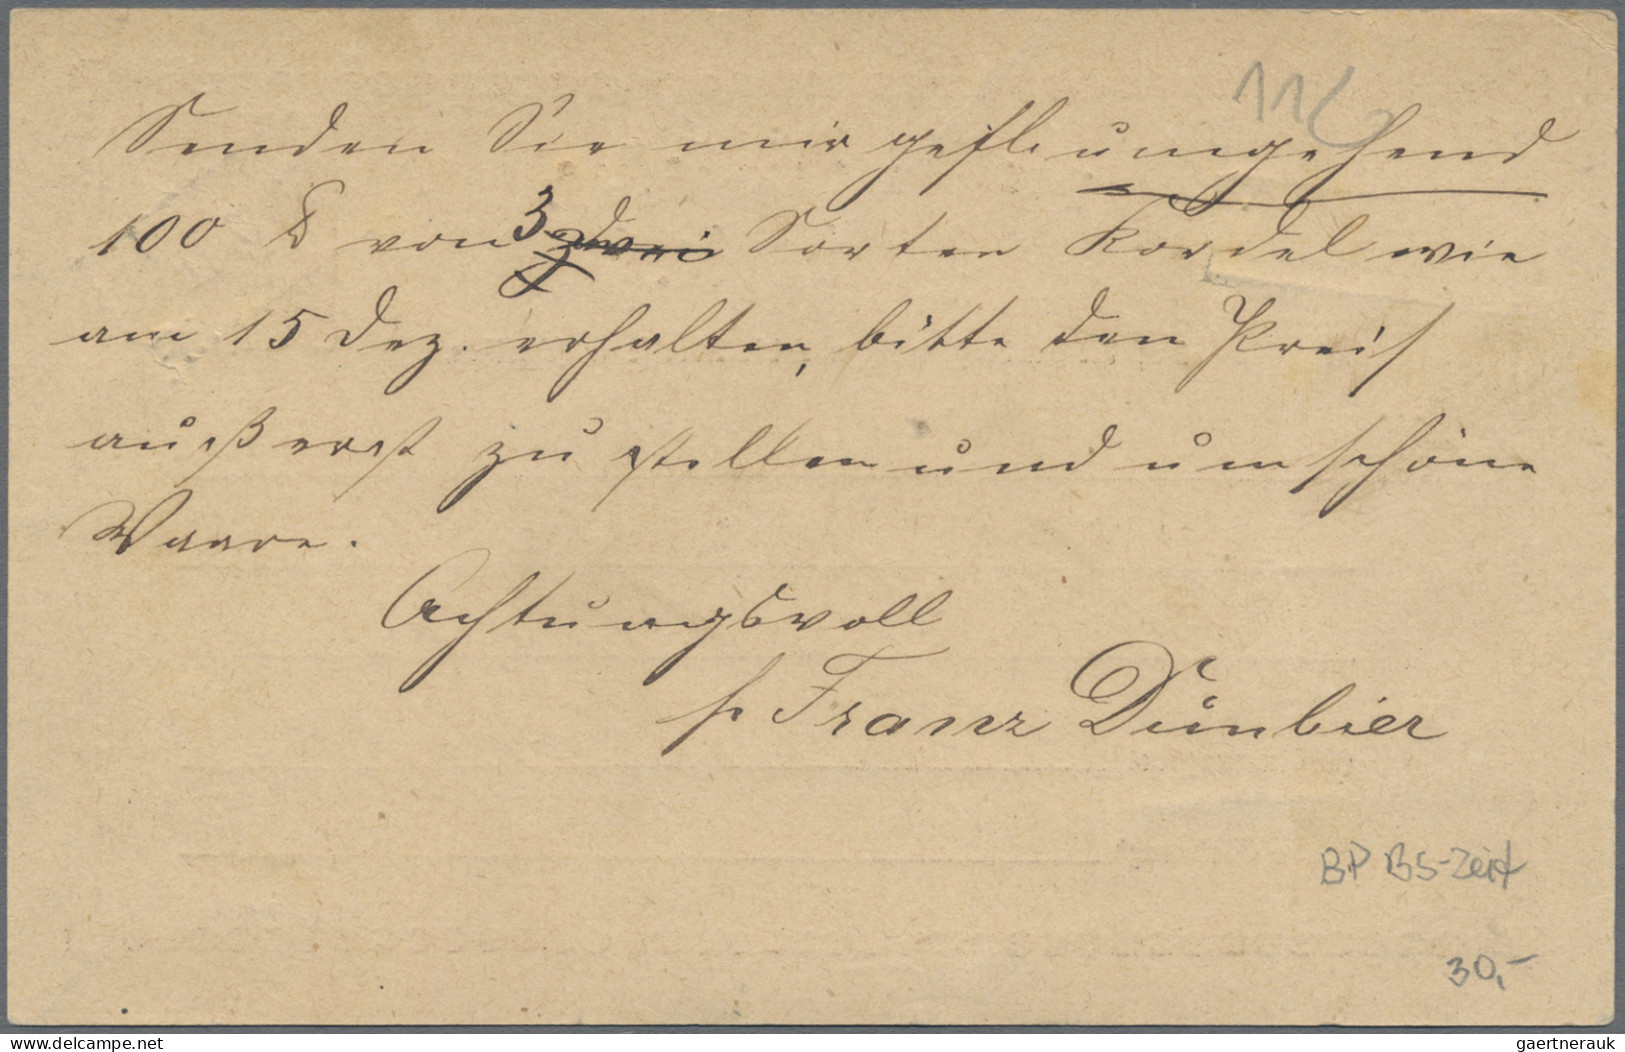 116
Senden Sie mir gefl. umgehend
100 ℔ von 3 drei Sorten Kordel wie
am 15 Dez. erhalten, bitte den Preis
außerst zu stellen und um schöne
Waare.
Achtungsvoll
Franz Dünbier
BP BS-Zeit
30,-
www.delcampe.net
gaertnerauk